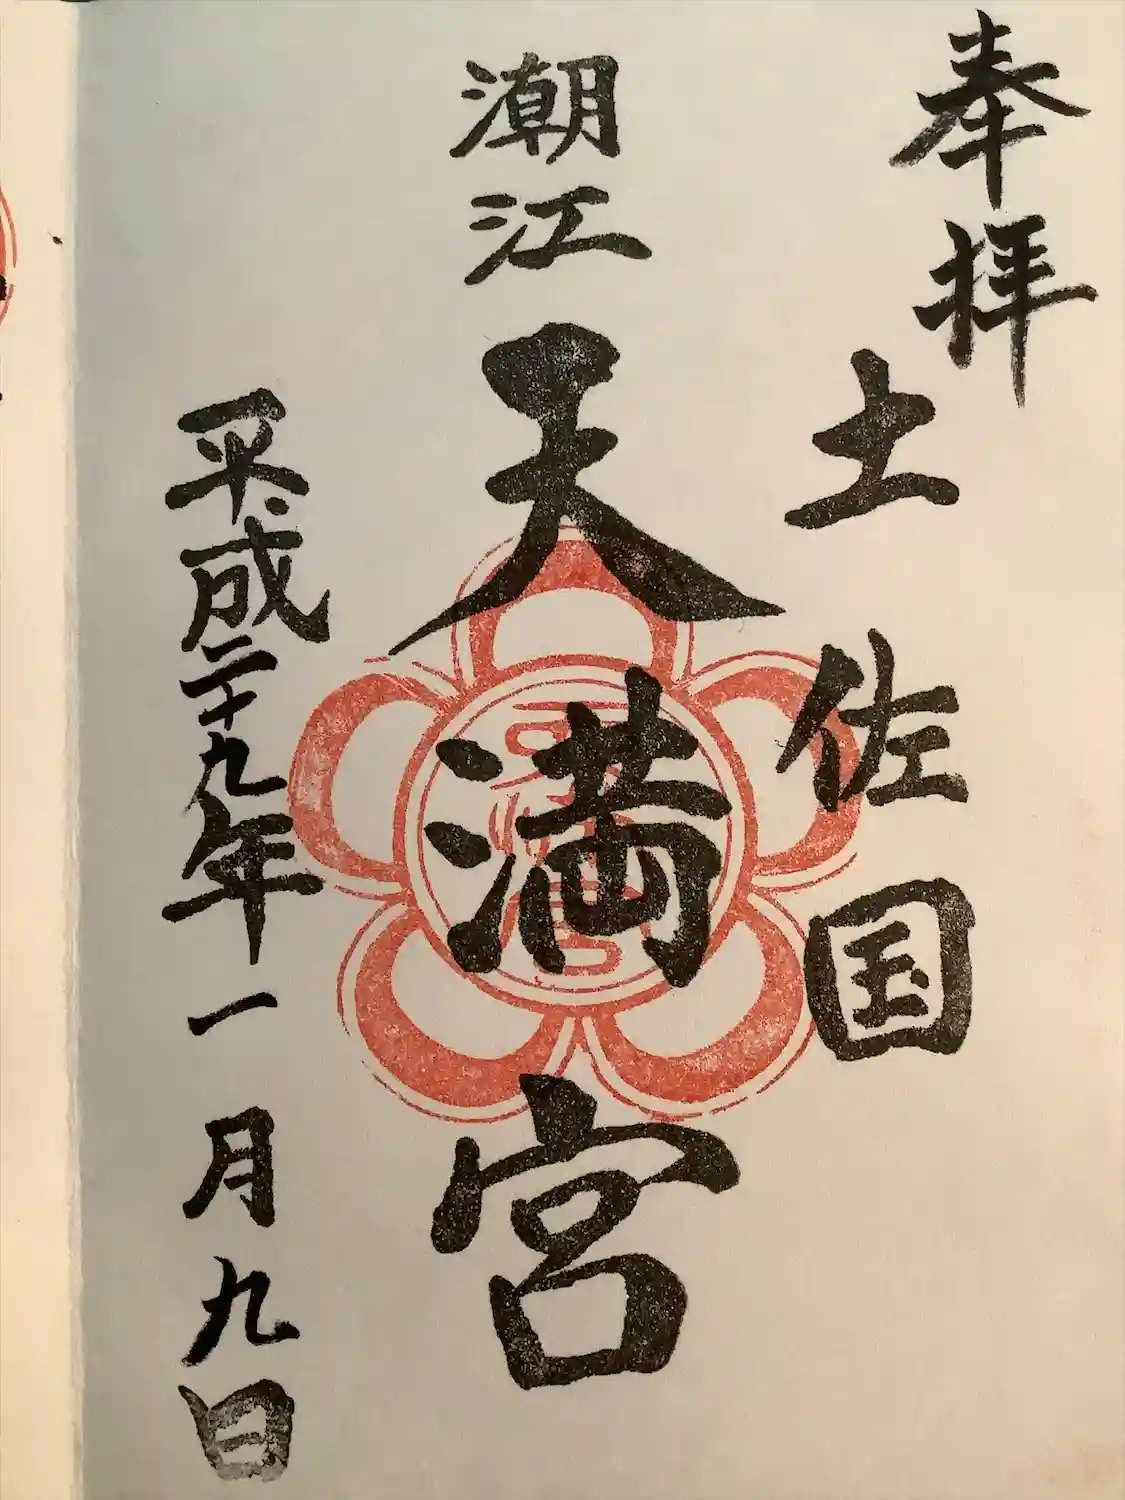 奉拝
土佐国
潮江天満宮
平成二十九年一月九日